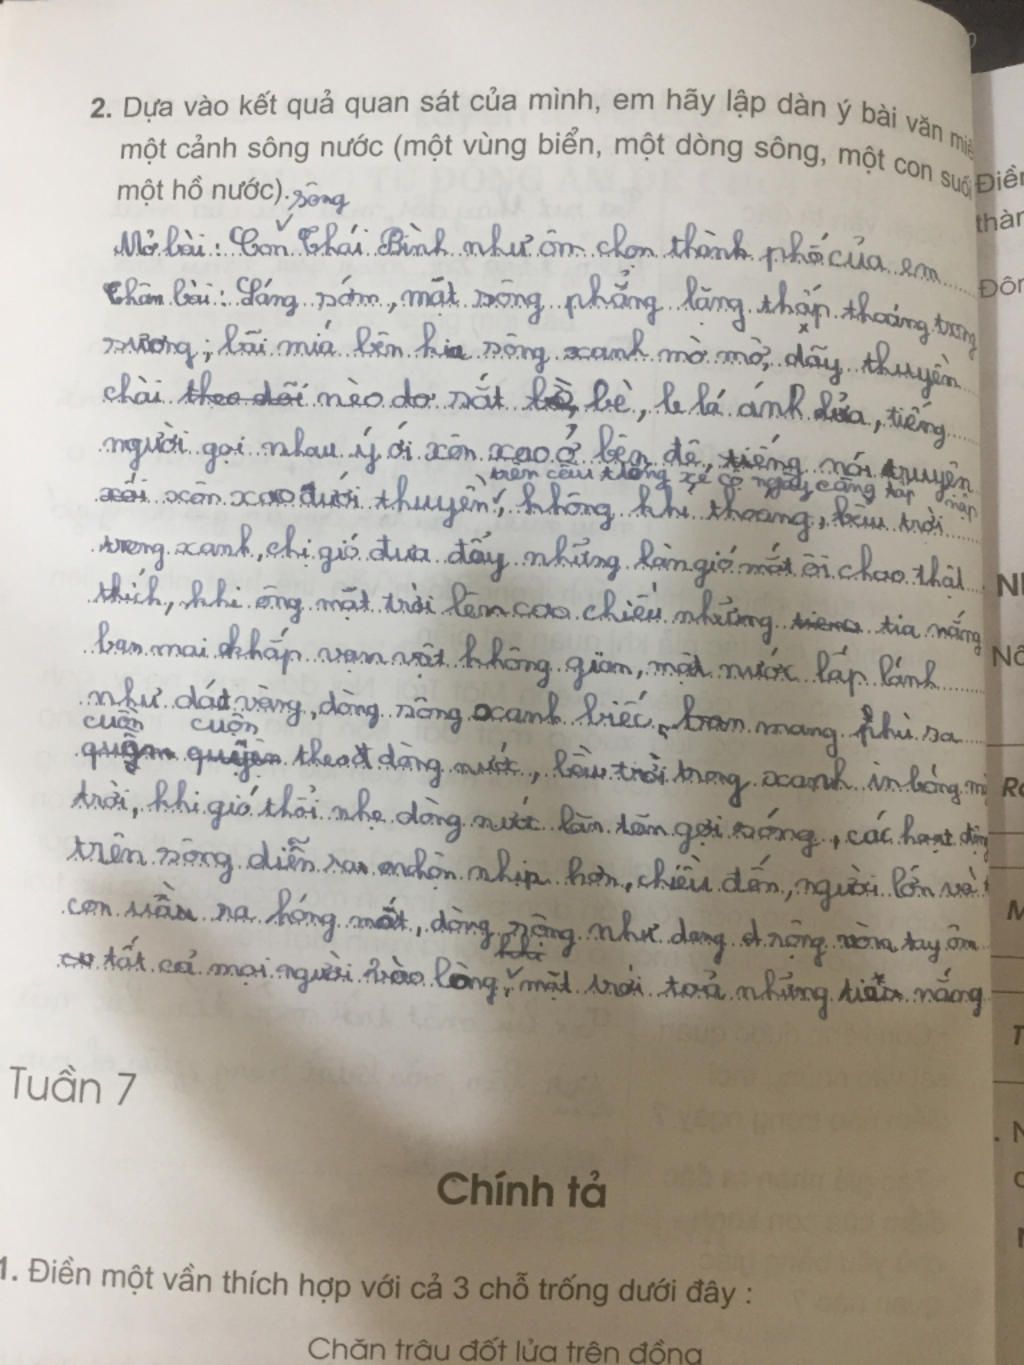 2. Dựa vào kết quả quan sát của mình, em hãy lập dàn ý bài văn miê
một cảnh sông nước (một vùng biển, một dòng sông, một con suối
một hồ nước).
sông
Mở bài: Con Thái Bình như ôm chọn thành phố của em
Thân bài: Sáng sớm, mặt sông phẳng lặng thấp thoáng trong
sương; bãi mía bên kia sông xanh mờ mờ, dãy thuyền
chài theo dõi nèo đơ sát bờ, bè, le lá ánh lửa, tiếng
người gọi nhau ý ới xôn xao ở bên đê, tiếng nói truyện
trên cầu dòng xe cộ ngày càng tấp nập
xôn xao dưới thuyền, không khí thoáng, bầu trời
trong xanh, chị gió đưa đẩy những làn gió mát ôi chao thật
thích, khi ông mặt trời lên cao chiếu những tia nắng
ban mai khắp vạn vật không gian, mặt nước lấp lánh
như dát vàng, dòng sông xanh biếc, mang phù sa
cuồn cuộn
theo dòng nước, bầu trời trong xanh in bóng mặ
trời, khi gió thổi nhẹ dòng nước lăn tăn gợi sóng, các hoạt động
trên sông diễn ra nhộn nhịp hơn, chiều đến, người lớn và t
con ra hóng mát, dòng sông như dang rộng vòng tay ôm
tất cả mọi người vào lòng, mặt trời toả những nắng
Tuần 7
Chính tả
1. Điền một vần thích hợp với cả 3 chỗ trống dưới đây :
Chăn trâu đốt lửa trên đồng
Điền
thàn
Đôn
Nh